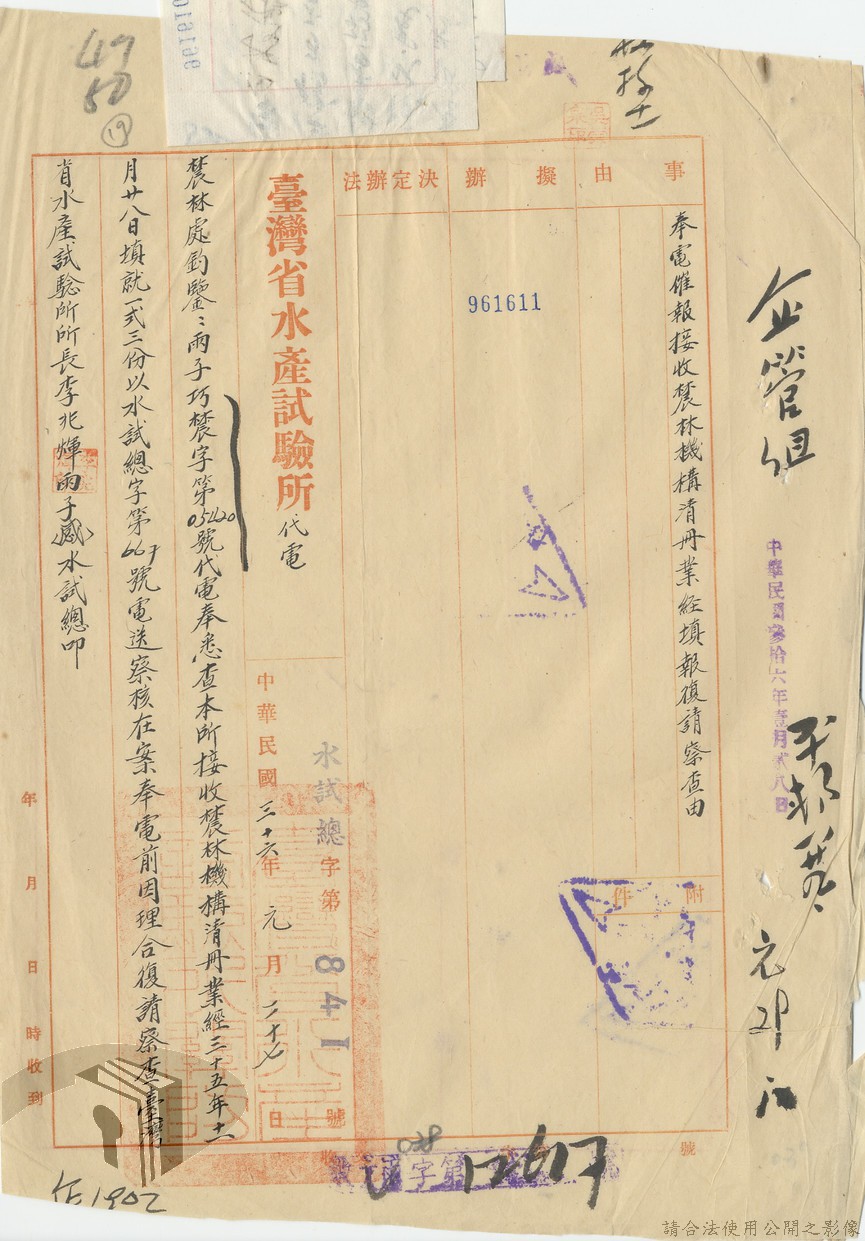 事由
擬辦
決定辦法
奉電催報接收農林機構清冊業經填報復請察查由
附件
961611
臺灣省水產試驗所
代電
水試總字第841號
中華民國三十六年元月二十七日
農林處鈞鑒：兩子巧農字第05420號代電奉悉查本所接收農林機構清冊業經三十五年十二
月廿八日填就一式三份以水試總字第667號電送察核在案奉電前因理合復請察查臺灣
省水產試驗所所長李兆輝兩子感水試總叩
年月日時收到
企管組
中華民國參拾六年壹月貳八日
字第12617號
收
47
50
19
1902
961961
請合法使用公開之影像